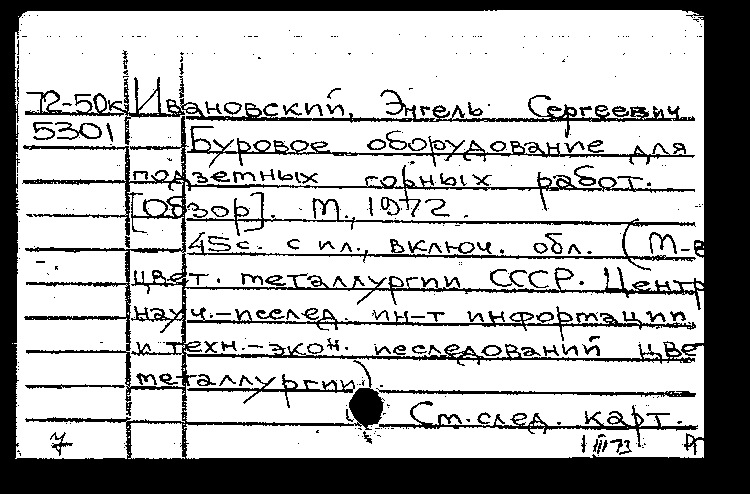 72-50к Ивановский, Энгель Сергеевич
5301 Буровое оборудование для
подземных горных работ.
[Обзор]. М., 1972.
45с. с ил., включ. обл. (М-в
цвет. металлургии СССР. Центр
науч.-исслед. ин-т информации
и техн.-экон. исследований цве
металлургии).
См. след. карт.
7 1 III 73